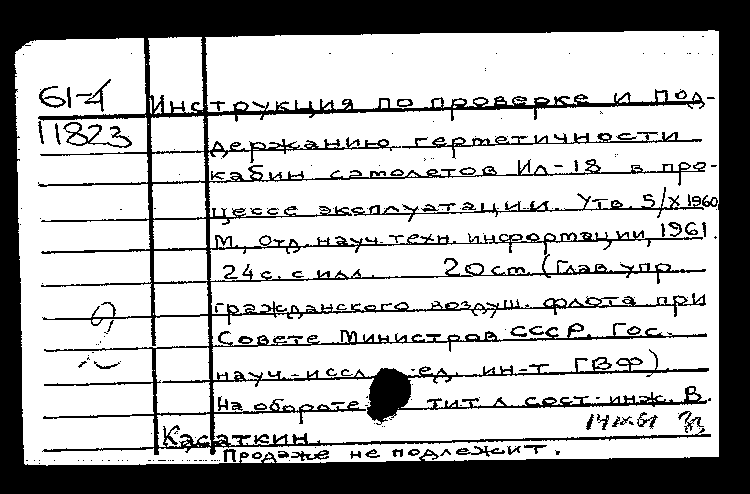 61-4
11823
Инструкция по проверке и под-
держанию герметичности
кабин самолетов Ил-18 в про-
цессе эксплуатации. Утв. 5/X 1960
М., Отд. науч. техн. информации, 1961.
24 с. с илл. 20 см. (Глав. упр
гражданского воздуш. флота при
Совете Министров СССР. Гос.
науч.-иссл ед. ин-т ГВФ)
На обороте тит л сост: инж. В.
Касаткин.
14 IX 61
Продаже не подлежит.
2